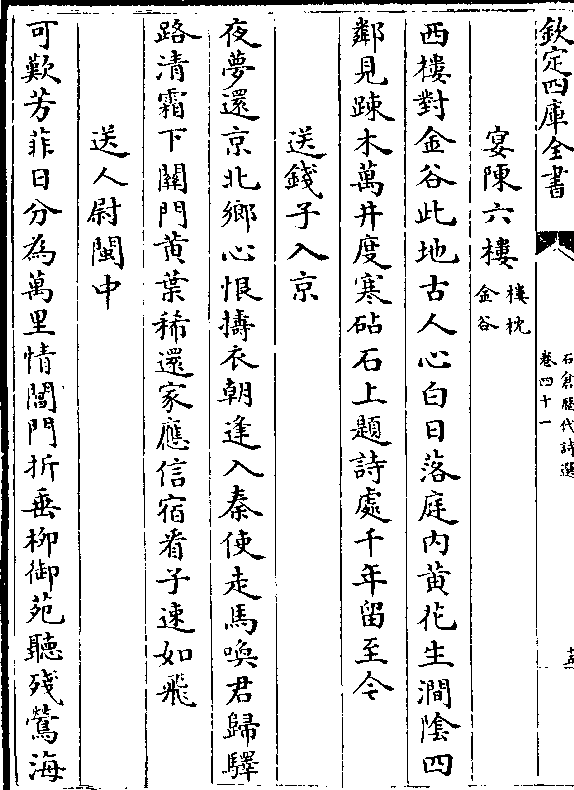 欽定四庫全書
石倉歷代詩選
卷四十一
十五
宴陳六樓樓枕金谷
西樓對金谷此地古人心白日落庭内黄花生澗隂四
鄰見踈木萬井度寒砧石上題詩處千年留至今
送錢子入京
夜夢還京北鄉心恨擣衣朝逢入秦使走馬喚君歸驛
路清霜下關門黄葉稀還家應信宿看子速如飛
送人尉閩中
可歎芳菲日分為萬里情閶門折垂柳御苑聽殘鶯海